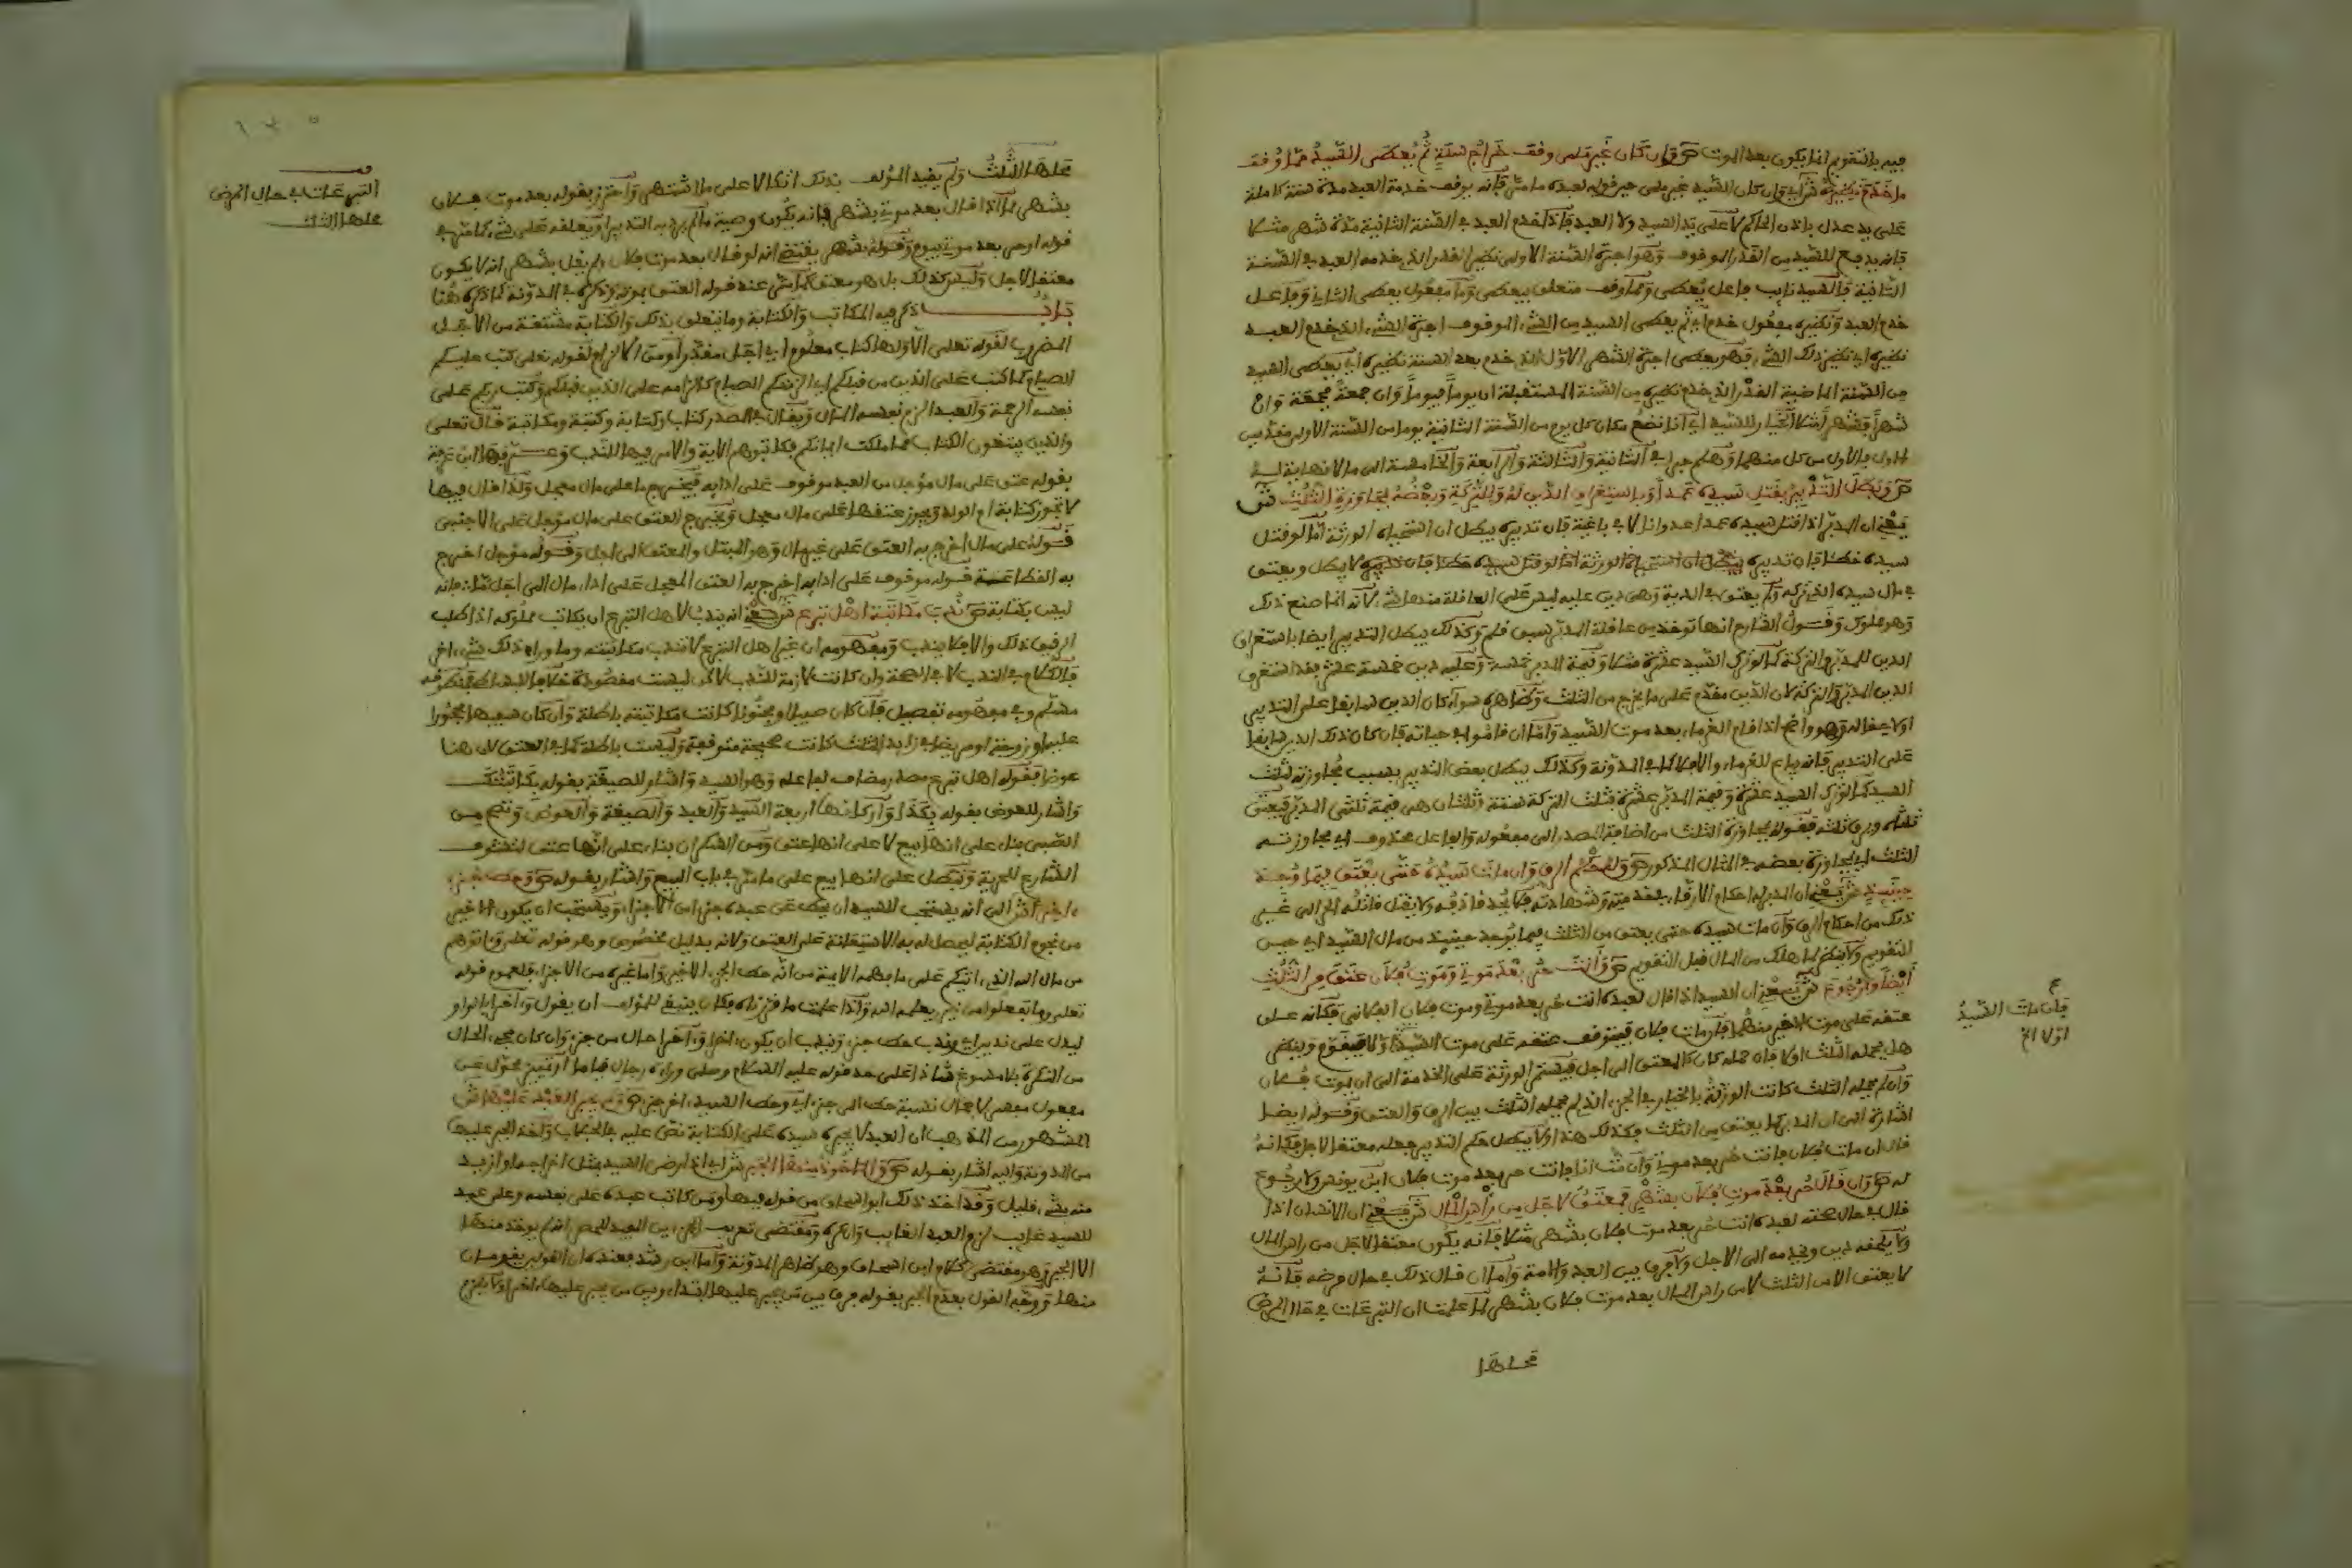 فيه بالتقويم انما يكون بعد الموت ص وان كان غير ملي وقف خراج سنة ثم يعطى السيد مما وقف
ما خدم نظيره ش اي وان كان السيد غير ملي حين قوله لعبده ما مر فانه يوقف خدمة العبد مدة سنة كاملة
على يد عدل باذن الحاكم لا على يد السيد ولا العبد فاذا خدم العبد في السنة الثانية مدة شهر مثلا
فانه يدفع للسيد من القدر الموقوف وهو اجرة السنة الاولى نظير القدر الذي خدمه العبد في السنة
الثانية فالسيد نايب فاعل يعطى ومما وقف متعلق بيعطى وما مفعول يعطى الثاني وفاعل
خدم العبد ونظيره مفعول خدم اي ثم يعطى السيد من الشيء الموقوف اجرة الشيء الذي خدم العبد
نظيره اي نظير ذلك الشيء فهو يعطى اجرة الشهر الاول الذي خدم بعد السنة نظيره اي يعطى السيد
من السنة الماضية القدر الذي خدم نظيره من السنة المستقبلة ان يوما فيوما وان جمعة فجمعة وان
شهرا فشهرا
ص وبطل التدبير بقتل سيده عمدا وباستغراق الدين له وللتركة وبعضه بمجاوزة الثلث ش
يعني ان المدبر اذا قتل سيده عمدا عدوانا لا في باغية فان تدبيره يبطل ان استحياه الورثة اما لو قتل
سيده خطا فان تدبيره لا يبطل ويعتق
في مال سيده الذي تركه ولم يعتق في الدية وهي دين عليه ليس على العاقلة منها شيء لانه انما صنع ذلك
وهو مملوك وقول الشارح انها توخذ من عاقلة المدبر سبق قلم وكذلك يبطل التدبير ايضا باستغراق
الدين للمدبر والتركة كما لو ترك السيد عشرة مثلا وقيمة المدبر خمسة وعليه دين خمسة عشر فقد استغرق
الدين المدبر والتركة لان الدين مقدم على ما يخرج من الثلث وظاهره سواء كان الدين سابقا على التدبير
او لاحقا له وهو واضح اذا قام الغرماء بعد موت السيد واما ان قاموا في حياته فان كان ذلك الدين سابقا
على التدبير فانه يباع للغرماء والا فلا كما في المدونة وكذلك يبطل بعض التدبير بسبب مجاوزته لثلث
السيد كما لو ترك السيد عشرة وقيمة المدبر عشرة فثلث التركة ستة وثلثان هي قيمة ثلثي المدبر فيعتق
ثلثاه ويرق ثلثه فقوله بمجاوزة الثلث من اضافة المصدر الى مفعوله والفاعل محذوف اي مجاوزته
الثلث اي بمجاوزة بعضه في المثال المذكور ص وله حكم الرق وان مات سيده حتى يعتق فيما وجد
حينئذ ش يعني ان المدبر له احكام الارقاء في خدمته وشهادته فلا يحد قاذفه ولا يقتل قاتله الحر الى غير
ذلك من احكام الرق وان مات سيده حتى يعتق من الثلث فيما يوجد حينئذ من مال السيد اي حين
التقويم ولا ينظر لما هلك من المال قبل التقويم ص وانت حر بعد موتي وموت فلان عتق من الثلث
ايضا ولا رجوع ش يعني ان السيد اذا قال لعبده انت حر بعد موتي وموت فلان الفلاني فكانه علق
عتقه على موت الاخير منهما فان مات فلان فيتوقف عتقه على موت السيد
هل يحمله الثلث او لا فان حمله كان كالمعتق الى اجل فيستمر الورثة على الخدمة الى ان يموت فلان
وان لم يحمله الثلث كانت الورثة بالخيار في الجزء الذي لم يحمله الثلث بين الرق والعتق وقوله ايضا
اشارة الى ان المدبر كما يعتق من الثلث فكذلك هذا ولا يبطل حكم التدبير جعله معتقا لاجل فكانه
قال ان مات فلان فانت حر بعد موتي وان مت انا فانت حر بعد موت فلان ابن يونس ولا رجوع
له ص وان قال حر بعد موت فلان بشهر فمعتق لاجل من راس المال ش يعني ان الانسان اذا
قال في حال صحته لعبده انت حر بعد موت فلان بشهر مثلا فانه يكون معتقا لاجل من راس المال
ولا يلحقه دين ويخدمه الى الاجل ولا فرق بين العبد والامة واما ان قال ذلك في حال مرضه فانه
لا يعتق الا من الثلث لا من راس المال بعد موت فلان بشهر لما علمت ان التبرعات في هذا المرض
محلها
فان مات السيد
اولا الخ
محلها الثلث ولم يقيد المؤلف بذلك اتكالا على ما اشتهر واحترز بقوله بعد موت فلان
بشهر مما اذا قال بعد موتي بشهر فانه يكون وصية ما لم يرد به التدبير او يعلقه على شيء كما مر في
قوله او حر بعد موتي بيوم وقوله بشهر يقتضي انه لو قال بعد موت فلان ولم يقل بشهر انه لا يكون
معتقا لاجل وليس كذلك بل هو معتق
باب ذكر فيه المكاتب والكتابة وما يتعلق بذلك والكتابة مشتقة من الاجل
المضروب لقوله تعالى الا ولها كتاب معلوم اي اجل مقدر او من الالزام لقوله تعالى كتب عليكم
الصيام كما كتب على الذين من قبلكم اي الزمكم الصيام كالزامه على الذين قبلكم وكتب ربكم على
نفسه الرحمة والعبد الزم نفسه المال ويقال في المصدر كتاب وكتابة وكتبة ومكاتبة قال تعالى
والذين يبتغون الكتاب مما ملكت ايمانكم فكاتبوهم الاية والامر فيها للندب وعرفها ابن عرفة
بقوله عتق على مال مؤجل من العبد موقوف على ادايه فيخرج ما على مال معجل ولذا قال فيها
لا تجوز كتابة ام الولد ويجوز عتقها على مال معجل ويخرج العتق على مال مؤجل على الاجنبي
فقوله على مال اخرج به العتق على غير مال وهو المبتل والعتق الى اجل وقوله مؤجل اخرج
به القطاعة قوله موقوف على ادايه اخرج به العتق المعجل على اداء مال الى اجل فانه
ليس بكتابة ص ندب مكاتبة اهل تبرع ش يعني انه يندب لاهل التبرع ان يكاتب مملوكه اذا طلب
الرقيق ذلك والا فلا يندب ومفهومه ان غير اهل التبرع لا تندب مكاتبته وما وراء ذلك شيء اخر
فالكلام في الندب لا في الصحة وان كانت لازمة للندب
مسلم وفي مفهومه تفصيل فان كان صبيا او مجنونا كانت مكاتبته باطلة وان كان سفيها محجورا
عليه او زوجة او مريضا في زايد الثلث كانت صحيحة متوقفة وليست باطلة كما في العتق لان هنا
عوضا فقوله اهل تبرع مصدر مضاف لفاعله وهو السيد واشار للصيغة بقوله بكاتبتك
واشار للعوض بقوله بكذا واركانها اربعة السيد والعبد والصيغة والعوض وتصح من
الصبي بناء على انها بيع لا على انها عتق ومن السكران بناء على انها عتق لتشوف
الشارع للحرية وتبطل على انها بيع على ما مر في باب البيع واشار بقوله ص وحط جزء
اخر ش الى انه يستحب للسيد ان يحط عن عبده جزءا من الاجزاء ويستحب ان يكون الاخير
من نجوم الكتابة ليحصل له به الاستعانة على العتق ولانه بدليل مخصوص وهو قوله تعالى واتوهم
من مال الله الذي اتيكم على ما فهمه الايمة من انه حط الجزء الاخير واما غيره من الاجزاء فلعموم قوله
تعالى وما تفعلوا من خير يعلمه الله واذا علمت ما قررناه فكان ينبغي للمؤلف ان يقول واخرا بالواو
ليدل على ندبين اي وندب حط جزء وندب ان يكون اخرا واخرا حال من جزء وان كان مجيء الحال
من النكرة بلا مسوغ شاذا على حد قوله عليه السلام وصلى وراءه رجال قياما او تمييز محول عن
مفعول مفسر لاجمال نسبة حط الى جزء اي وحط السيد اخر جزء ص ولم يجبر العبد عليها ش
المشهور من المذهب ان العبد لا يجبره سيده على الكتابة نص عليه في الجلاب واخذ الجبر عليها
من المدونة واليه اشار بقوله ص والماخوذ منها الجبر ش اي اذا رضي السيد بمثل خراجها وازيد
منه بشيء قليل وقد اخذ ذلك ابو اسحاق من قوله فيها ومن كاتب عبده على نفسه وعلى عبد
للسيد غايب لزم العبد الغايب وان كره ومقتضى تعريف الجزءين المفيد للحصر انه لم يوخذ منها
الا الجبر وهو مقتضى كلام ابن اسحاق وهو ظاهر المدونة واما ابن رشد فعنده ان القولين يقومان
منها ووجه القول بعدم الجبر بقوله فرق بين من يجبر عليها ابتداء وبين من يجبر عليها اخرا ولا يلزم
التبرعات في حال المرض
محلها الثلث